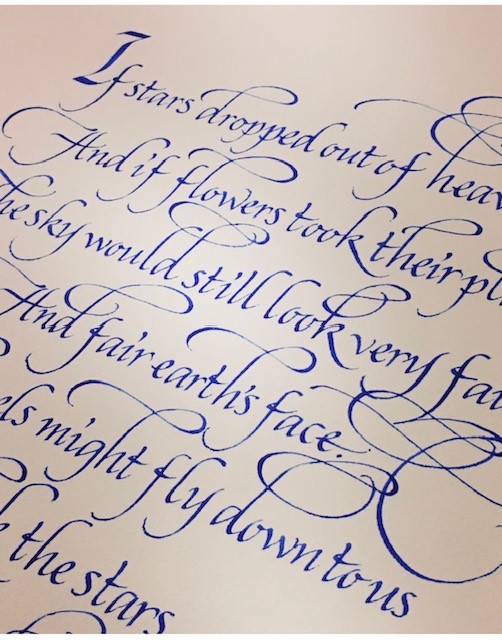 If stars dropped out of heav
And if flowers took their pl
The sky would still look very fai
And fair earth's face.
els might fly down to us
the stars